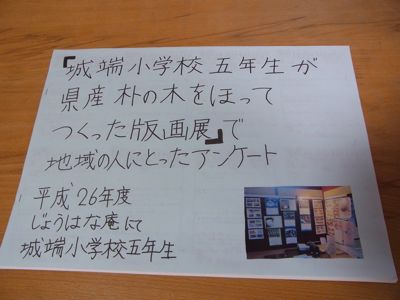 『城端小学校五年生が
県産朴の木をほって
つくった版画展』で
地域の人にとったアンケート
平成26年度
じょうはな庵にて
城端小学校五年生